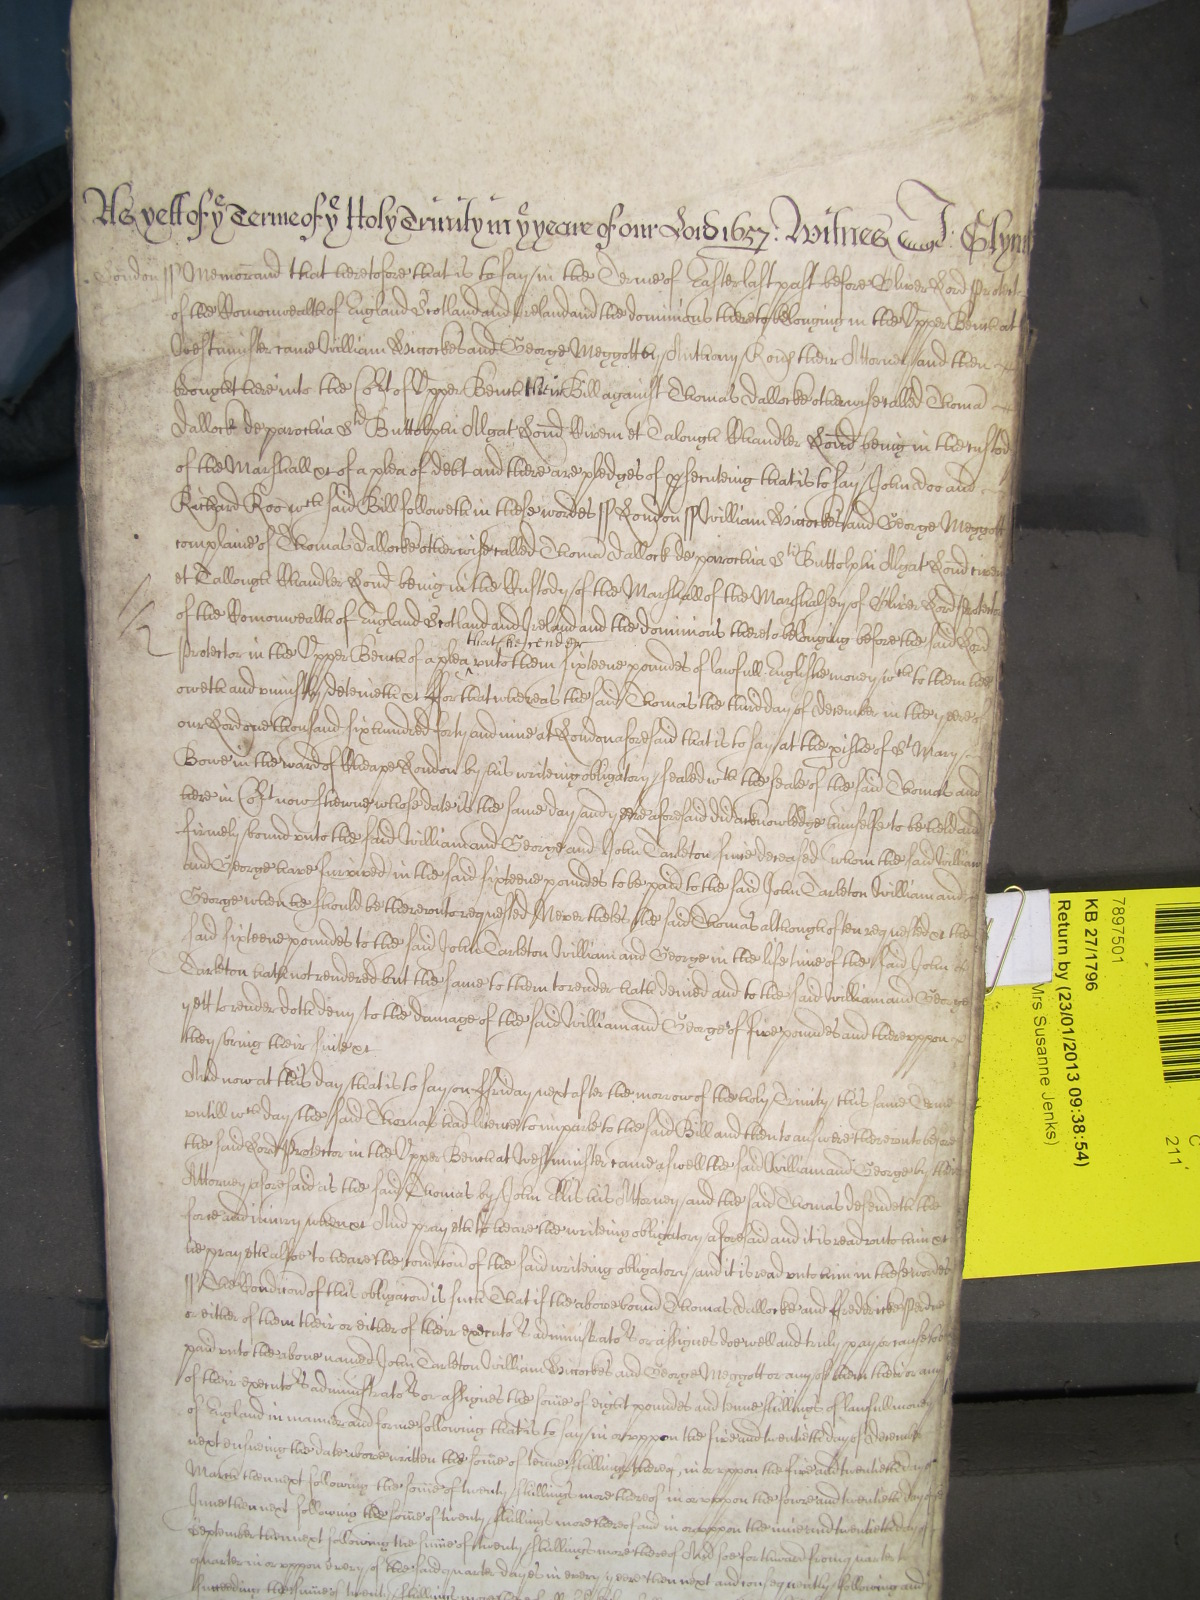 As yett of ye Terme of ye Holy Trinity in ye yeare of our Lord 1657: Witnes J: Glynn
London ss Memorand that heretofore that is to say in the Terme of Easter last past before Oliver Lord Protect
of the Comonwealth of England Scotland and Ireland and the dominions thereto belonging in the Upper Bench at
Westminster came William and George Meggott by Anthony their Attorney and then
brought here into the Cort of Upper Bench their Bill against Thomas Dallocke otherwise called Thoma
Dallock de parochia Sti Buttolphi Algat Lond Civem et Talough Chandler Lond being in the custod
of the Marshall xt of a plea of debt and there are pledges of psecuteing that is to say John Doo and
Richard Roo wch said Bill followeth in these wordes ss London ss William and George Meggott
complaine of Thomas Dallocke otherwise called Thoma Dallock de parochia Sti Buttolphi Algat Lond civem
et Tallough Chandler Lond being in the Custody of the Marshall of the Marshalsey of Oliver Lord Protector
of the Comonwealth of England Scotland and Ireland and the dominions thereto belonging before the said Lord
that he render
Protector in the Upper Bench of a plea unto them sixteene poundes of lawfull English money wch to them hee
oweth and uniustly deteineth xt ffor that whereas the said Thomas the third day of december in the yeere of
our Lord one thousand six hundred forty and nine at London aforesaid that is to say at the pishe of St Mary
Bowe in the ward of Cheape London by his writeing obligatory sealed wth the seale of the said Thomas and
here in Cort now shewne whose date is the same day and yeere aforesaid did acknowledge himselfe to be held and
firmely bound unto the said William and George and John Tarleton since deceased whom the said William
and George have survived in the said sixteene poundes to be paid to the said John Tarleton William and
George when he should be thereunto requested Neverthelesse the said Thomas although often requested xt the
said sixteene poundes to the said John Tarleton William and George in the life time of the said John
Tarleton hath not rendered but the same to them to render hath denied and to the said William and George
yett to render doth deny to the damage of the said William and George of five poundes and thereuppon
they bring their suite xt
And now at this day that is to say on ffriday next after the morrow of the holy Trinity this same Terme
untill wch day the said Thomas had licence to imparle to the said Bill and then to answere thereunto before
the said Lord Protector in the Upper Bench at Westminster came aswell the said William and George by their
Attorney aforesaid as the said Thomas by John Ellis his Attorney and the said Thomas defendeth the
force and iniury when xt And prayeth to heare the writeing obligatory aforesaid and it is read unto him xt
he prayeth alsoe to heare the condicon of the said writeing obligatory and it is read unto him in these wordes
ss The Condicon of this obligacon is such That if the above bound Thomas Dallocke and ffrederick
or either of them their or either of their executors administrators or assignes doe well and truly pay or cause to be
paid unto the above named John Tarleton William and George Meggott or any of them their or any
of their executors administrators or assignes the some of eight poundes and tenne shillings of lawfull money
of England in manner and forme following that is to say in or uppon the five and twentieth day of decemb
next ensueing the date above written the some of tenne shillings thereof, in or uppon the five and twentieth day of
March then next following the some of twenty shillings more thereof in or uppon the foure and twentieth day of
June then next following the some of twenty shillings more thereof and in or uppon the nine and twentieth day of
September then next following the some of twenty shillings more thereof And soe forthward from quarter to
quarter in or uppon every of the said quarter dayes in every yeere then next and consequently following and
succeeding the some of twenty shillings
7897501
KB 27/1796
Return by (23/01/2013 09:38:54)
Mrs Susanne Jenks)
211